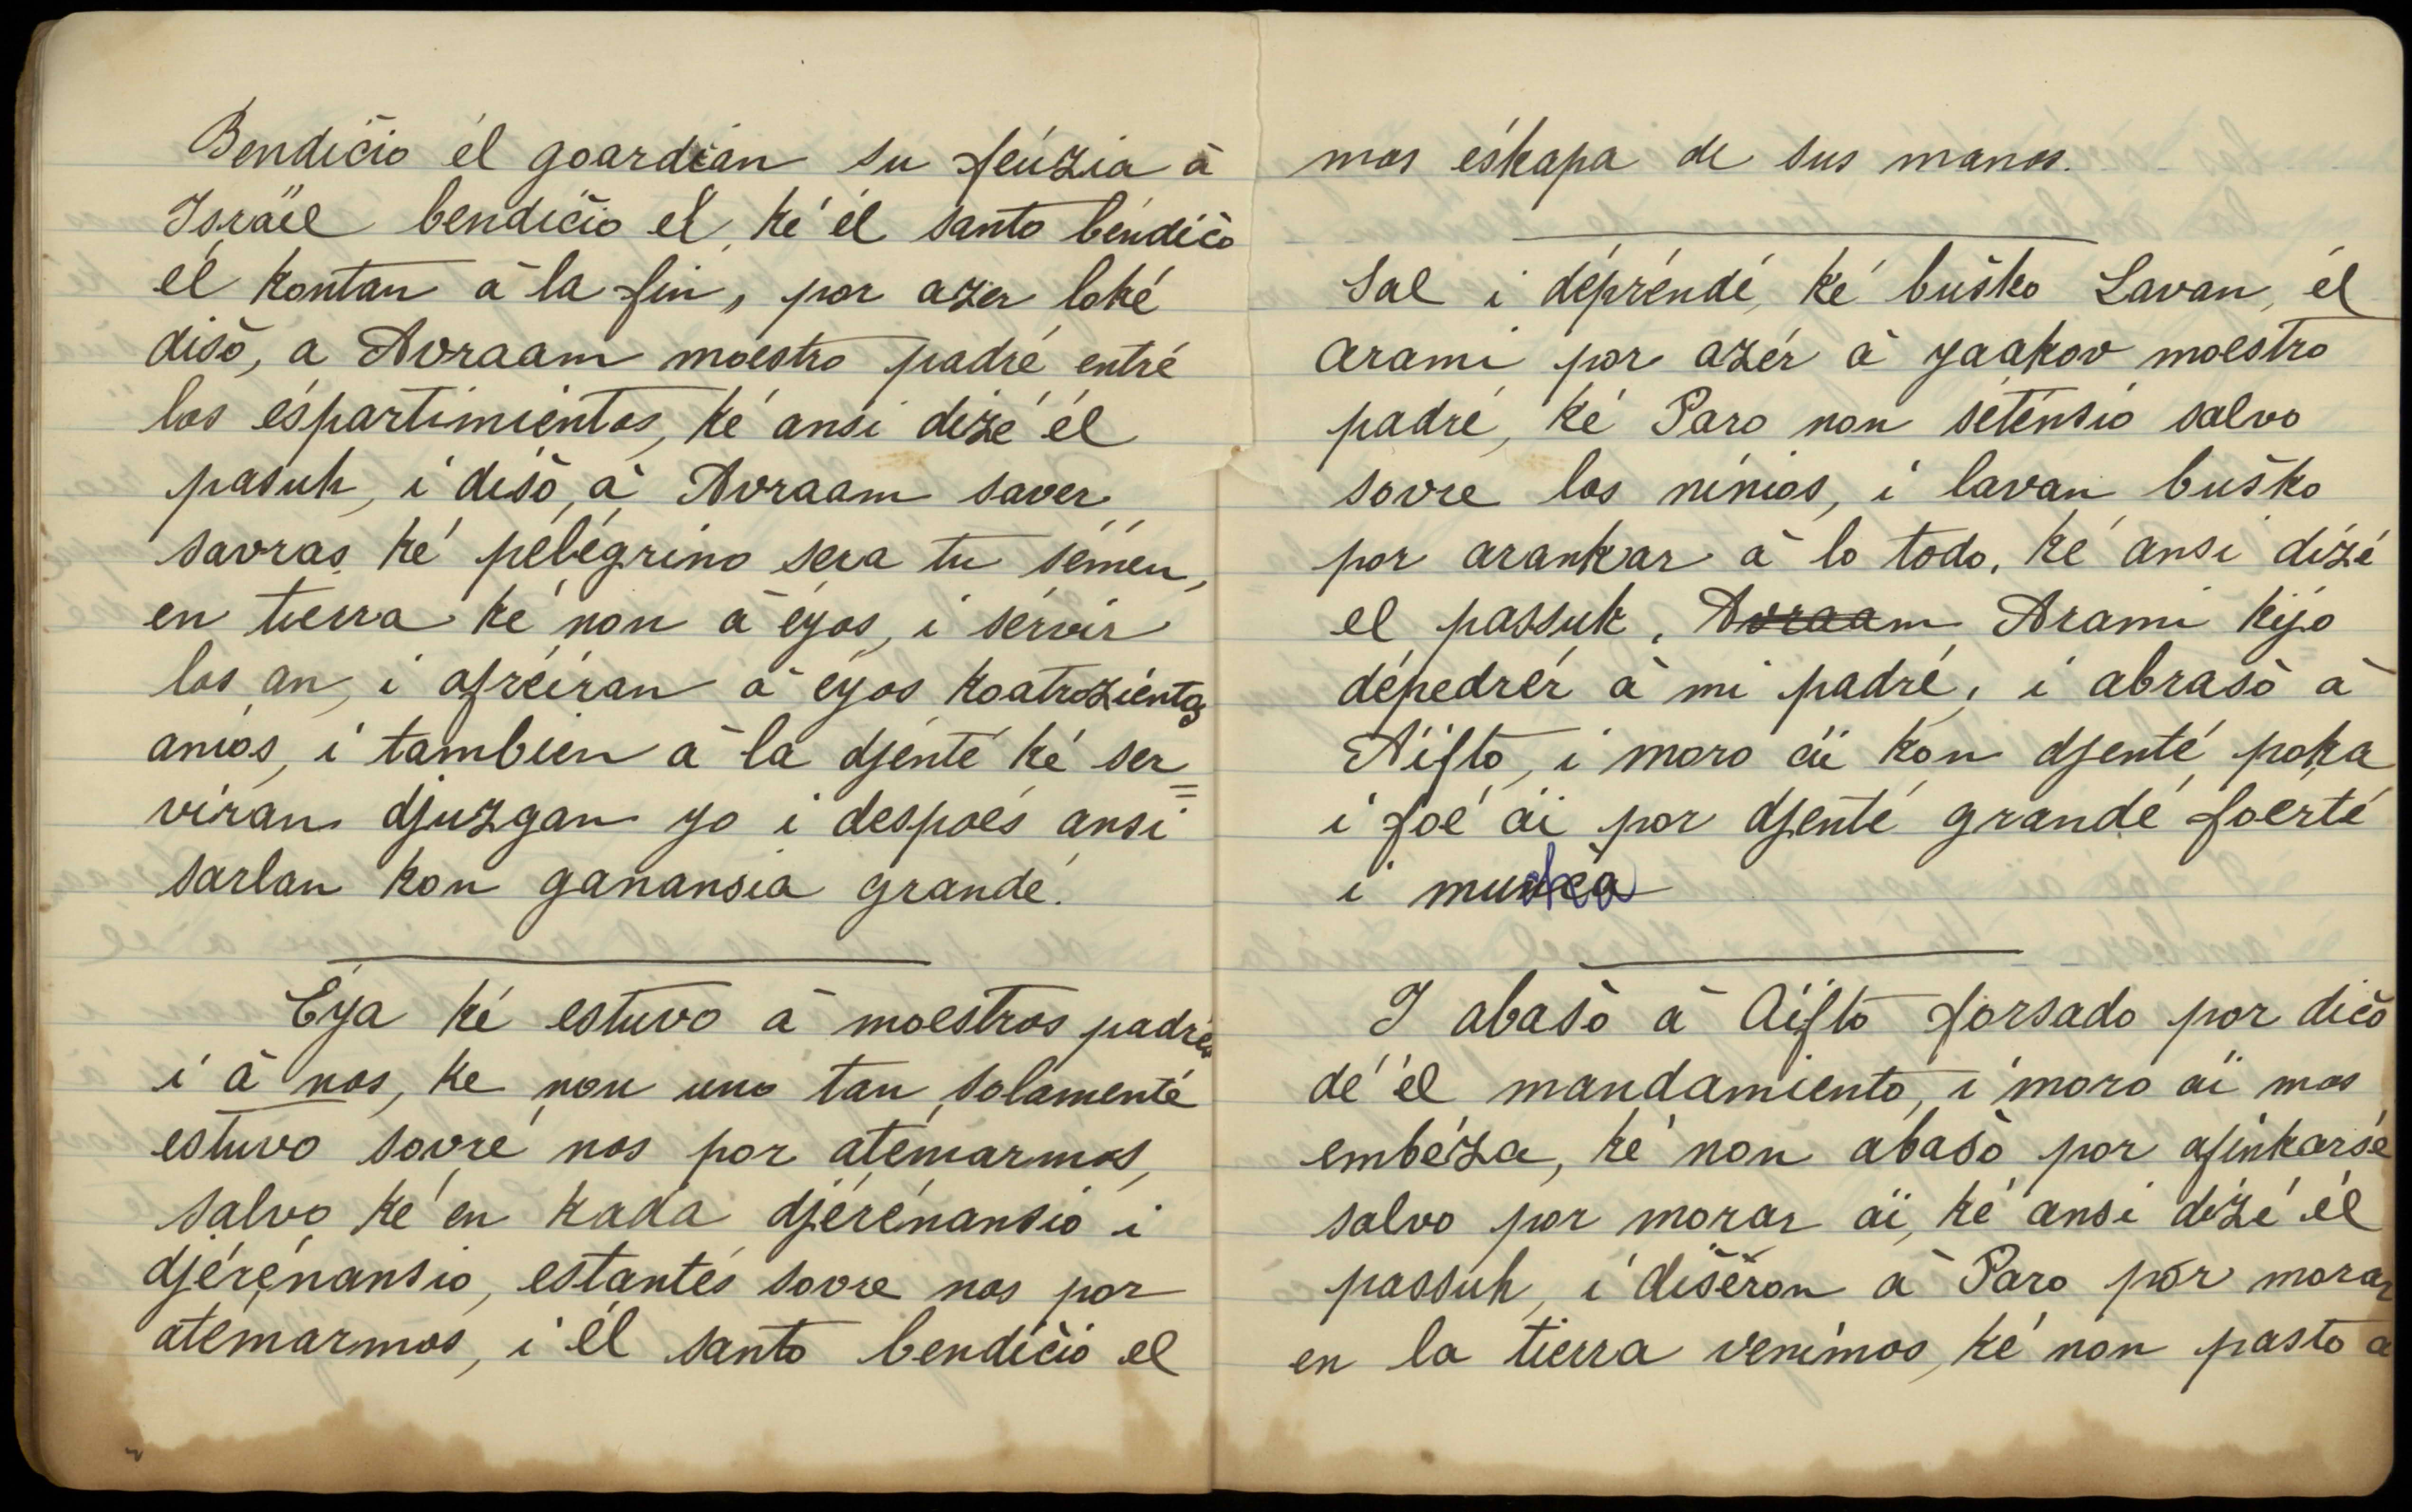 Bendičio él goardian su féuzia à
Israël bendičio el, ké él santo béndičo
él kontan à la fin, por azer loké
dišo, a Avraam moestro padré entré
los éspartimientos, ké ansi dizé él
pasuk, i dišo, à Avraam saver
savras ké pélégrino sera tu sémen,
en tierra ké non à éyos, i sérvir
los an, i afréiran à éyos koatroziéntos
anios, i tambien à la djénté ké ser=
viran djuzgan yo i despoés ansi
sarlan kon ganansia grandé.
Éya ké estuvo à moestros padrés
i à nos, ke non uno tan solamenté
estuvo sovré nos por atémarmos,
salvo ké en kada djérénansio i
djérénansio, estantés sovre nos por
atemarmos, i él santo bendičio el
mos éskapa de sus manos.
Sal i dépréndé, ké buško Lavan, él
Arami por azér à yaakov moestro
padré, ké Paro non séténsio salvo
sovre los ninios, i lavan buško
por arankar à lo todo, ké ansi dizé
el passuk, Avraam Arami kijo
dépedrér à mi padré, i abrašo à
Aïfto, i moro aï kon djenté poka
i foé aï por djenté grandé foerté
i muncha
I abašo à Aïfto forsado por dičo
dé él mandamiento, i moro aï mos
embéza, ké non abašo por afinkarsé
salvo por morar aï, ké ansi dizé él
passuk, i dišéron à Paro por morar
en la tierra venimos, ké non pasto a